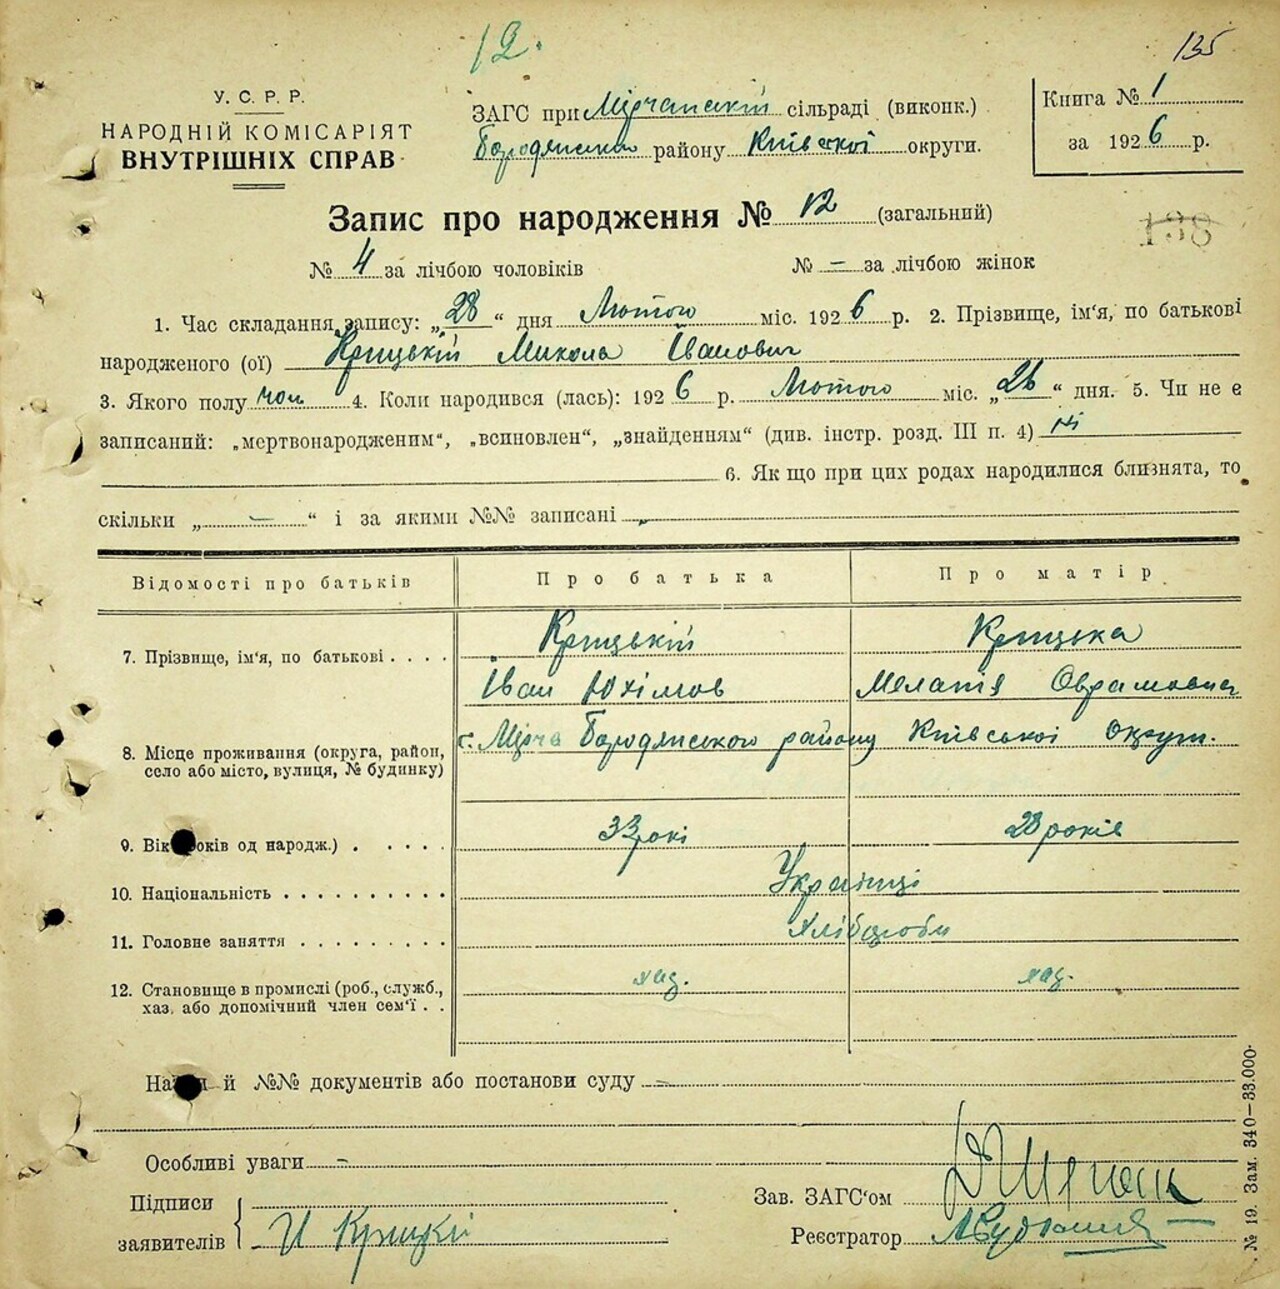 12.
135
У. С. Р. Р.
НАРОДНІЙ КОМІСАРІЯТ
ВНУТРІШНІХ СПРАВ
ЗАГС при Мірчанській сільраді (виконк.)
Бородянського району Київської округи.
Книга № 1
за 1926 р.
138
Запис про народження № 12 (загальний)
№ 4 за лічбою чоловіків № – за лічбою жінок
1. Час складання запису: „28“ дня Лютого міс. 1926 р. 2. Прізвище, ім'я, по батькові
народженого (ої) Крицькій Микола Іванович
3. Якого полу чол 4. Коли народився (лась): 1926 р. Лютого міс. „26“ дня. 5. Чи не є
записаний: „мертвонародженим“, „всиновлен“, „знайденням“ (див. інстр. розд. III п. 4) ні
6. Як що при цих родах народилися близнята, то
скільки „ – “ і за якими №№ записані „
Відомості про батьків Про батька Про матір
7. Прізвище, ім'я, по батькові . . . . Крицькій Крицька
Іван Юхімов Меланія Оврамовна
8. Місце проживання (округа, район, с. Мірча Бородянського району Київської Округи.
село або місто, вулиця, № будинку)
9. Вік років од народж.) . . . . . 33 рокі 28 років
10. Національність . . . . . . . . . . Українці
11. Головне заняття . . . . . . . . . Хлібороби
12. Становище в промислі (роб., служб., хаз. хаз.
хаз. або допомічний член сем'ї . .
й №№ документів або постанови суду –
Особливі уваги –
Підписи
заявителів И Крицкій
Зав. ЗАГС'ом
Реєстратор
№ 19. Зам. 340—33.000.